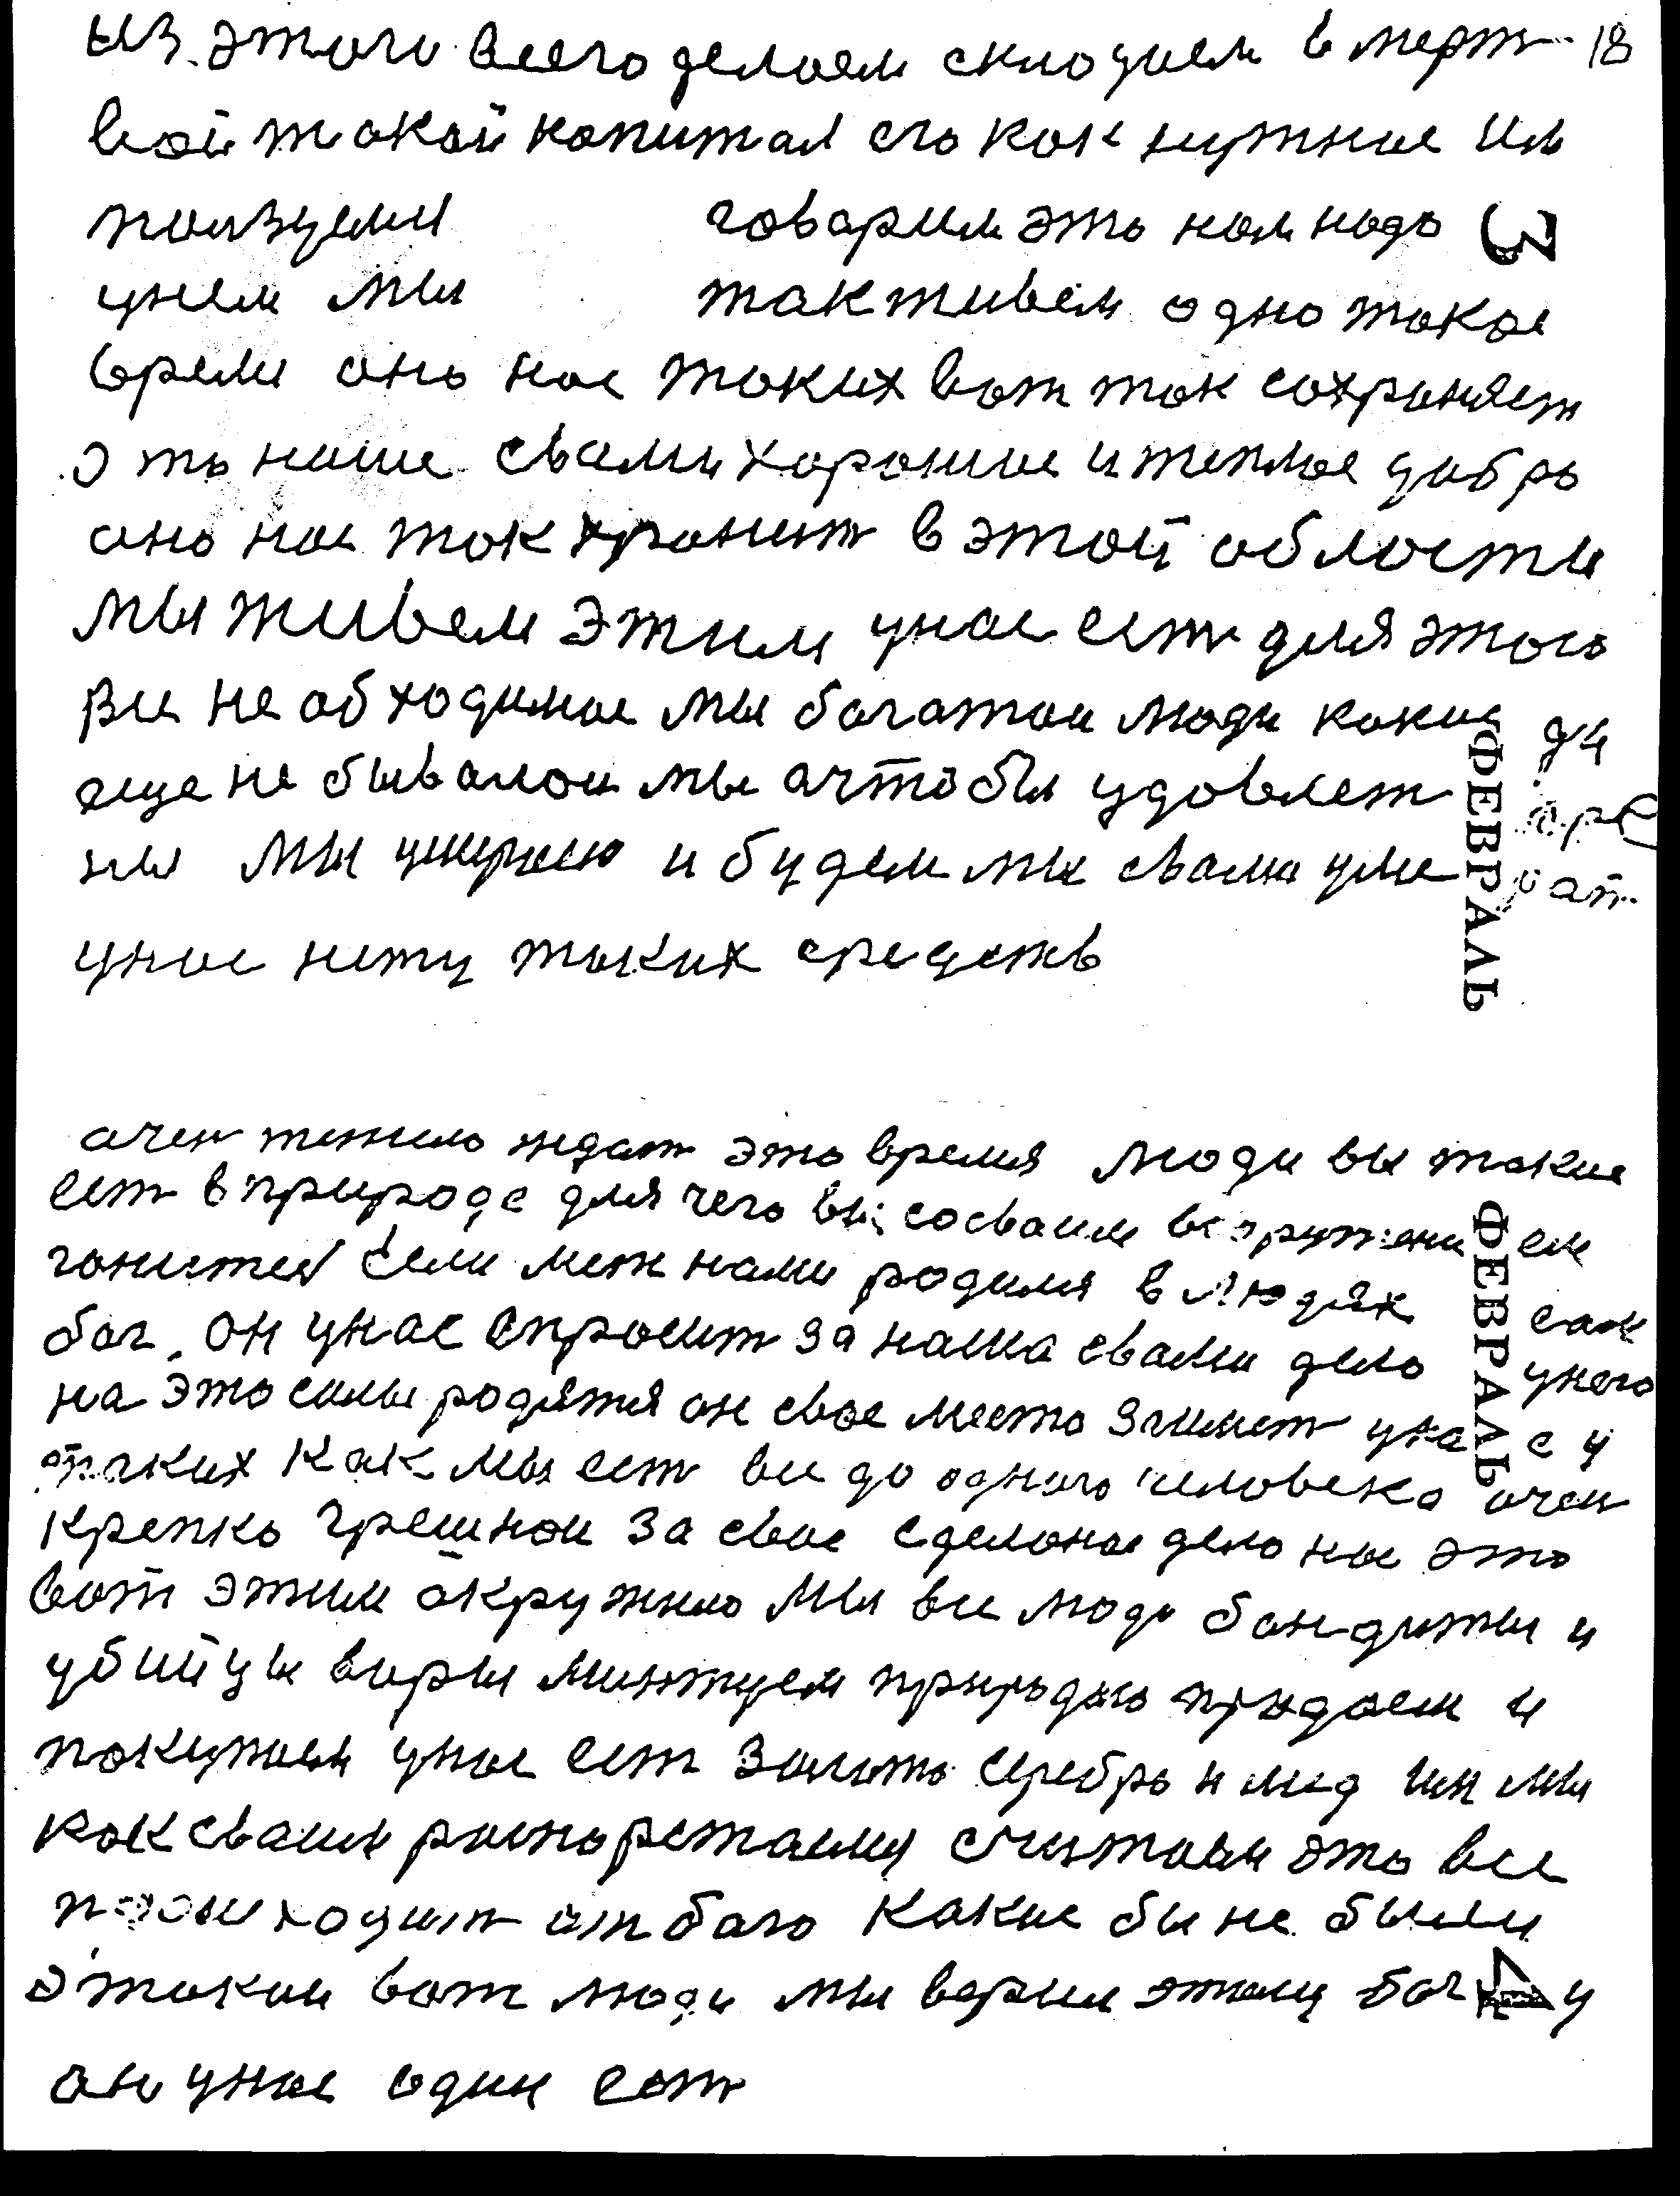 из этого всего делаем склодуем в мерт 18
вой такой капитал его как нужное ис
ползуеми говарим это нам надо 3
унем мы так живем одно такое
время оно нас таких вот так сохраняет
это наше свами хорошие и теплое добро
оно нас так хранит в этой области
мы живем этим унас ест для этого
все не обходимое мы богатои люди какие да
еще не бывалои мы а чтобы удовлет воре
ны мы и будем мы свами уме рат
унас нету таких средств
ФЕВРАЛЬ
очен тежело ждат это время люди вы такие
ест в природе для чего вы сосваим воружени ем
гонитеся если меж нами родился в людях сам
бог. он унас спросит за наша свами дело унего
на это силы родятся он свое место займет унас у
таких как мы ест все до одного человека очен
крепко грешнои за свое сделоное дело нас это
вот этим окружило мы все люди бандиты и
убийцы воры минтуем природою продаем и
покупаем унас ест золото серебро и мед им мы
как сваим роспоряжаемся считаем это все
происходит от бога какие бы не были
этакои вот люди мы верим этому богу 4
он унас один ест
ФЕВРАЛЬ